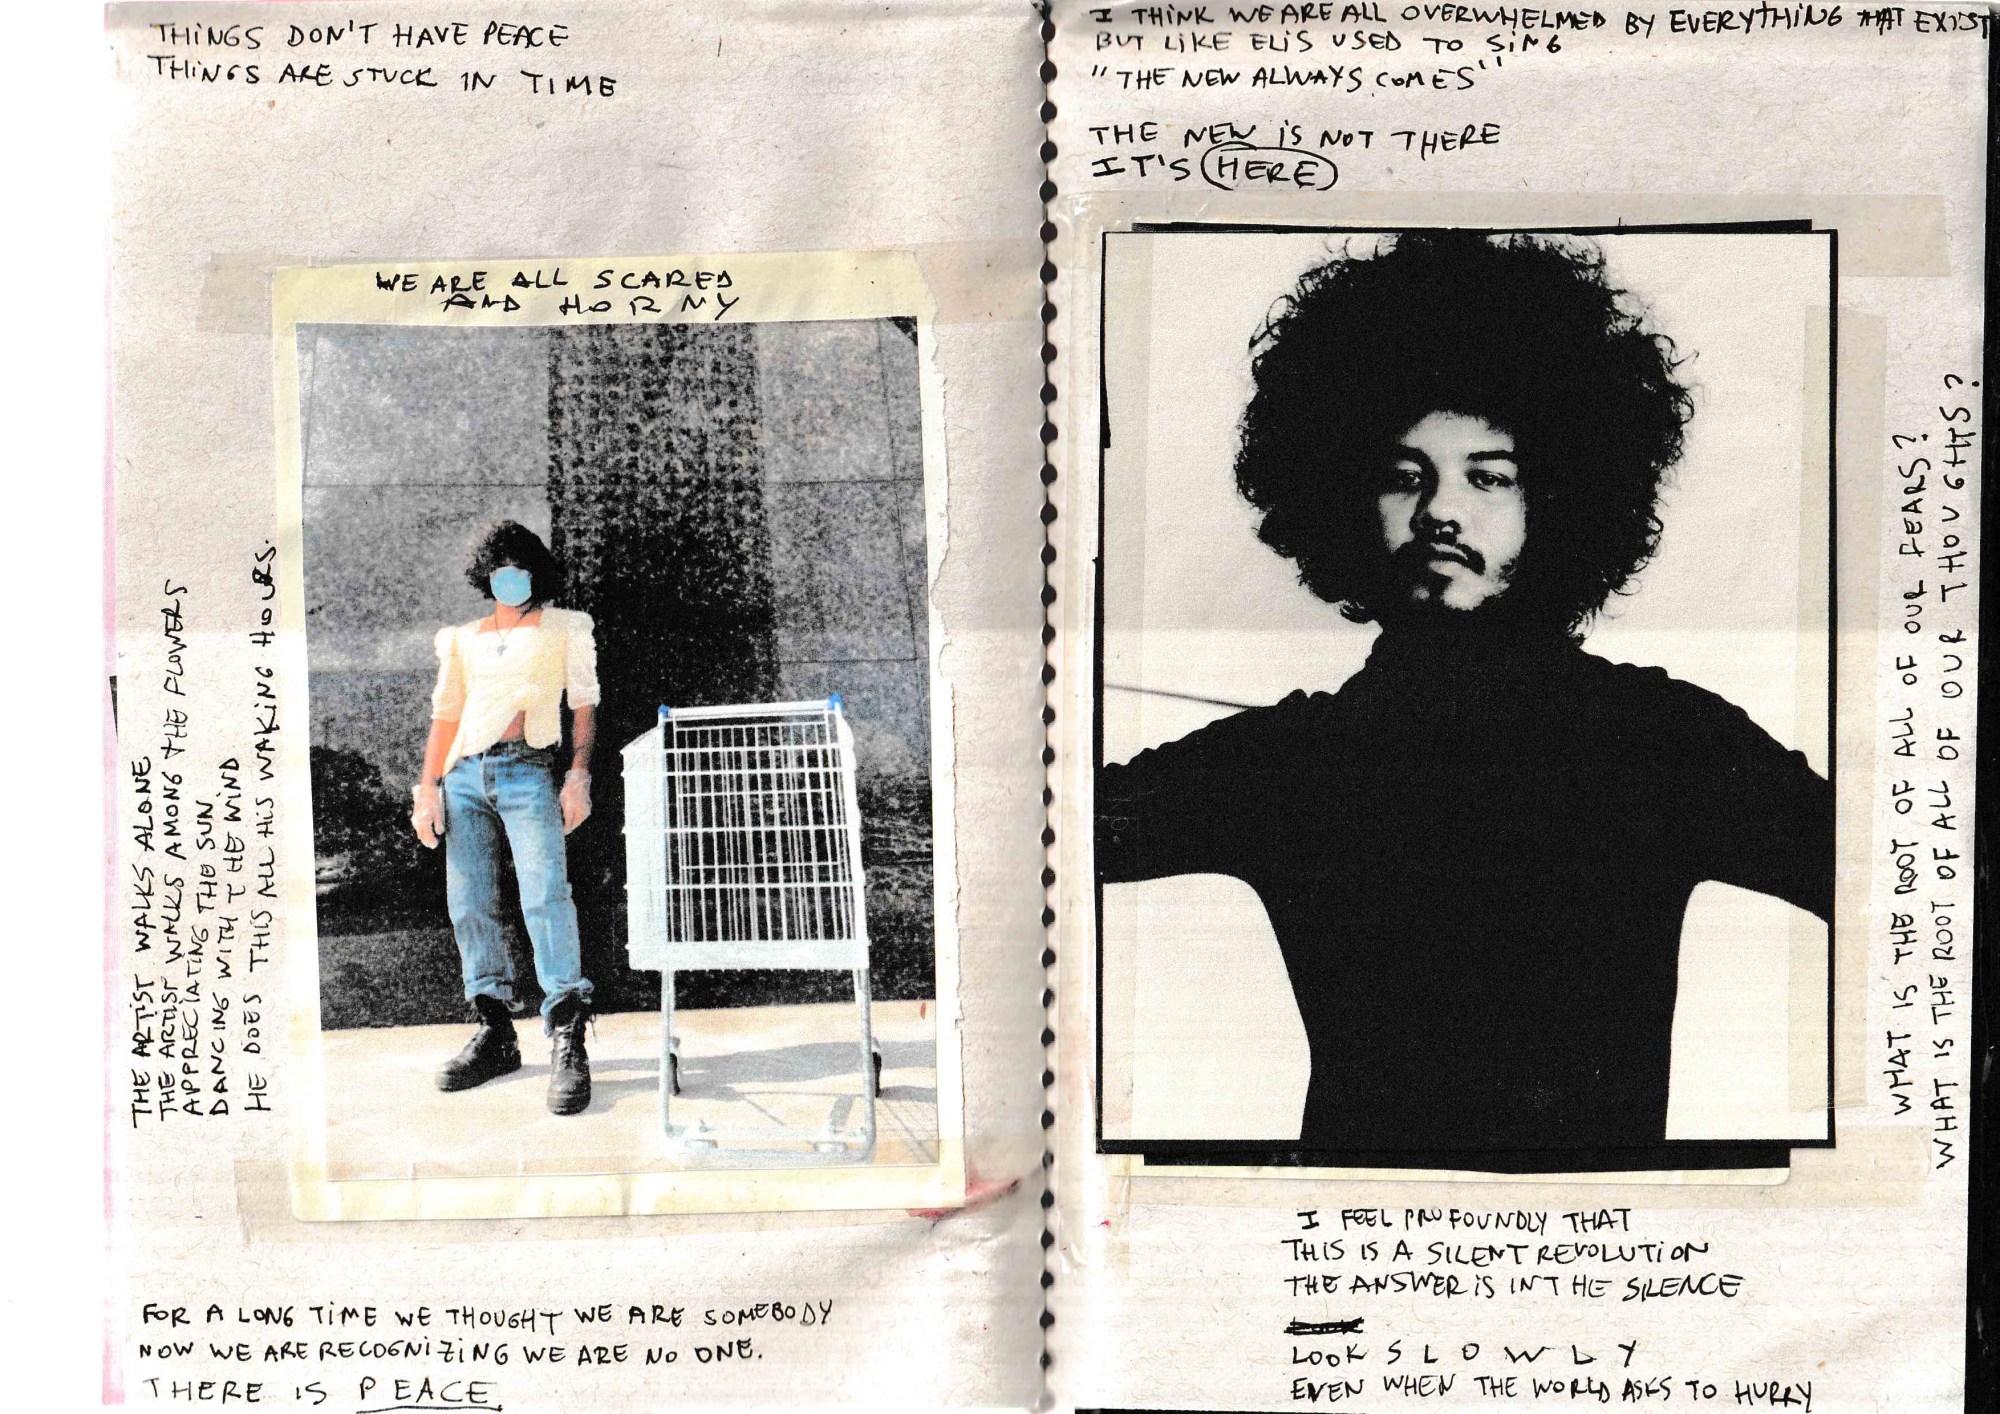 THINGS DON'T HAVE PEACE
THINGS ARE STUCK IN TIME
WE ARE ALL SCARED
AND HORNY
THE ARTIST WALKS ALONE
THE ARTIST WALKS AMONG THE FLOWERS
APPRECIATING THE SUN
DANCING WITH THE WIND
HE DOES THIS ALL HIS WAKING HOURS.
FOR A LONG TIME WE THOUGHT WE ARE SOMEBODY
NOW WE ARE RECOGNIZING WE ARE NO ONE.
THERE IS PEACE
I THINK WE ARE ALL OVERWHELMED BY EVERYTHING THAT EXIST
BUT LIKE ELIS USED TO SING
"THE NEW ALWAYS COMES"
THE NEW IS NOT THERE
IT'S HERE
WHAT IS THE ROOT OF ALL OF OUR FEARS?
WHAT IS THE ROOT OF ALL OF OUR THOUGHTS?
I FEEL PROFOUNDLY THAT
THIS IS A SILENT REVOLUTION
THE ANSWER IS IN THE SILENCE
LOOK S L O W L Y
EVEN WHEN THE WORLD ASKS TO HURRY